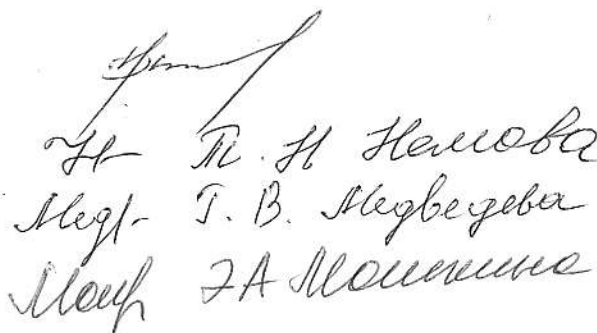 Т. Н Немова
Медв- Г. В. Медведева
Мош Э А Мошкина